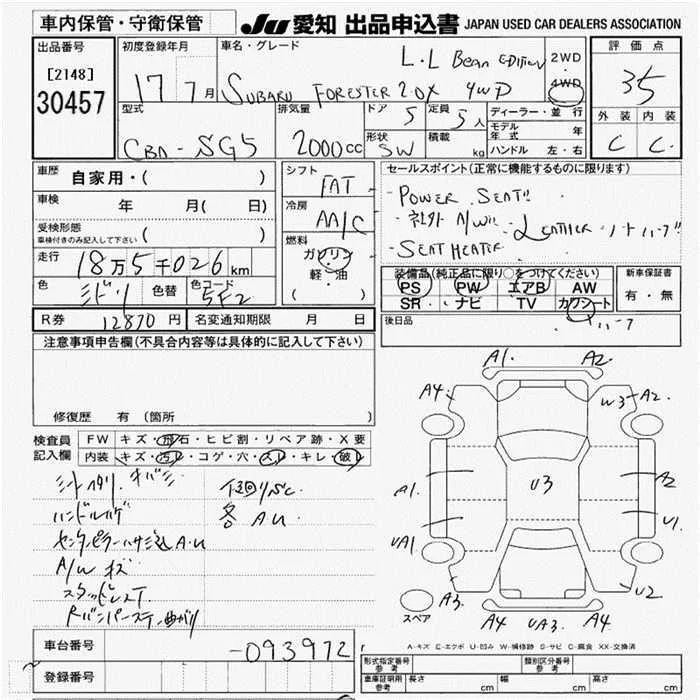 車内保管・守衛保管
JU 愛知 出品申込書 JAPAN USED CAR DEALERS ASSOCIATION
出品番号
[2148]
30457
初度登録年月
17 7月
車名・グレード
L.L Bean EDITION
SUBARU FORESTER 2.0X 4WD
2WD
4WD
評価点
35
外装 内装
C C
型式
CBA-SG5
排気量
2000cc
ドア
5
定員
5人
形状
SW
積載
kg
ディーラー・並行
モデル年式 年
ハンドル 左・右
車歴
自家用・( )
車検
年 月( 日)
受検形態
車検付きのみ記入して下さい
走行
18万5千026km
色
ミドリ
色替
色コード
5F2
シフト
FAT
冷房
AA/C
燃料
ガソリン
軽・油
( )
セールスポイント(正常に機能するものに限ります)
-POWER SEAT!!
・社外 A/W
・LEATHER シート ハーフ!!
-SEAT HEATER
装備品(純正品に限り○をつけてください)
PS PW エアB AW
SR ナビ TV カワシート
ハーフ
新車保証書
有・無
後日品
R券 12870円
名変通知期限 月 日
注意事項申告欄(不具合内容等は具体的に記入して下さい)
修復歴 有(箇所
検査員記入欄
FW キズ・飛石・ヒビ割・リペア跡・X要
内装 キズ・汚レ・コゲ・穴・スレ・キレ・破レ
シートヘタリ、
ハンドルハゲ
センターピラーハサミ込A.U
A/W キズ
スタッドレスT
Rバンパーステー曲がり
下回りSC
各 A U
A1
A2
A4
W3
A2
A1
U3
A2
U1
UA1
A3
U2
A4
UA3
A4
スペア
A-キズ E-エクボ U-凹み W-補修跡 S-サビ C-腐食 XX-交換済
車台番号
-093972
登録番号
形式指定番号
参考
類別区分番号
参考
車庫証明用
参考
長さ cm
幅 cm
高さ cm